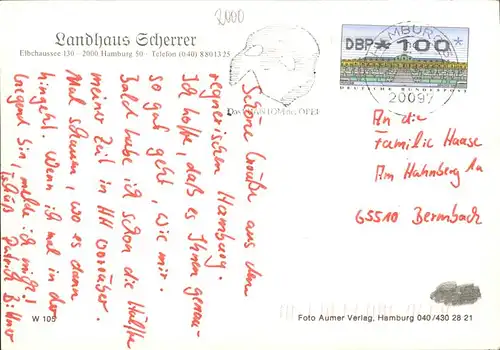 2000
Landhaus Scherrer
Elbchaussee 130 - 2000 Hamburg 50 - Telefon (040) 880 13 25
HAMBURG
20097
DBP 100
DEUTSCHE BUNDESPOST
Das PHANTOM der OPER
Schöne Grüße aus dem
regnerischen Hamburg.
Ich hoffe, daß es Ihnen genau-
so gut geht, wie mir.
Bald habe ich schon die Hälfte
meiner Zeit in HH vorüber.
Mal schauen, wo es dann
hingeht. Wenn ich mal in der
Gegend bin, melde ich mich!
Tschüß Patrick Bittner
An die
Familie Haase
Am Hahnberg 1a
65510 Bermbach
W 105
Foto Aumer Verlag, Hamburg 040/430 28 21